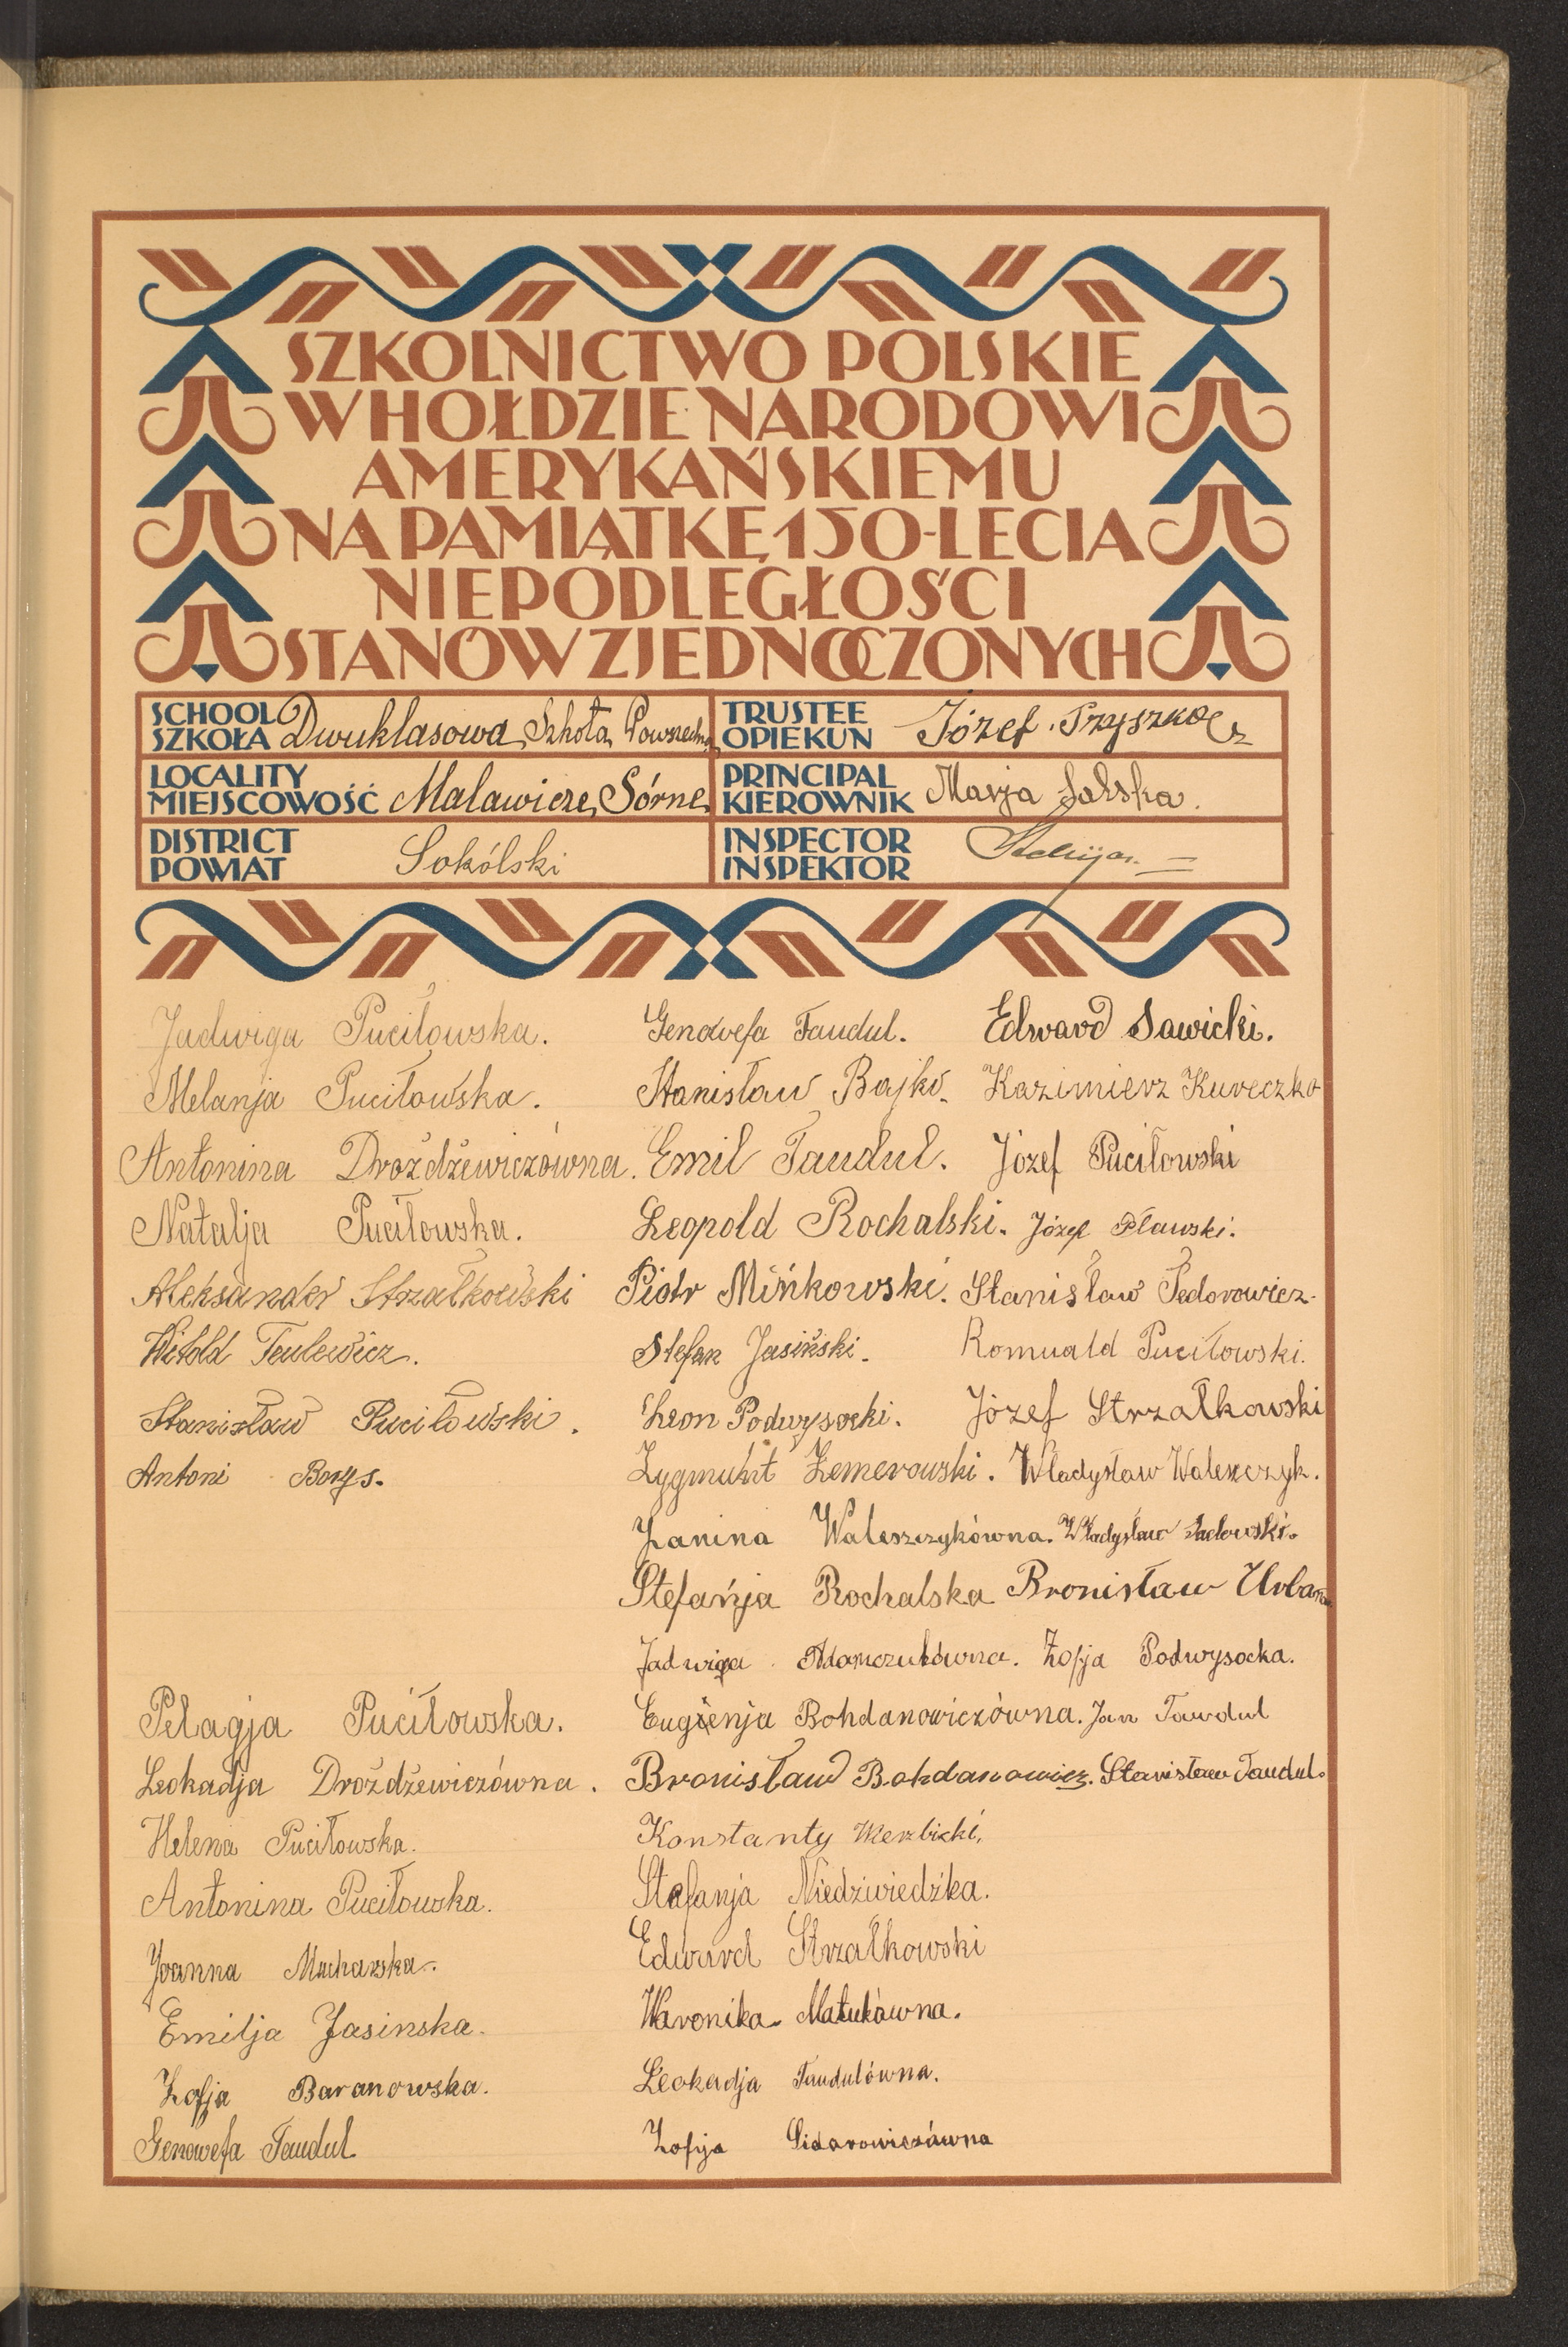 SZKOLNICTWO POLSKIE
W HOŁDZIE NARODOWI
AMERYKAŃSKIEMU
NA PAMIĄTKĘ 150-LECIA
NIEPODLEGŁOŚCI
STANÓW ZJEDNOCZONYCH
SCHOOL
SZKOŁA Dwuklasowa Szkoła Powszechna
TRUSTEE
OPIEKUN Józef
LOCALITY
MIEJSCOWOŚĆ Malawicze Górne
PRINCIPAL
KIEROWNIK Marja
DISTRICT
POWIAT Sokólski
INSPECTOR
INSPEKTOR
Jadwiga Puciłowska.
Melanja Puciłowska.
Antonina Drożdżewiczówna.
Natalja Puciłowska.
Aleksander Strzałkowski
Witold Teulewicz.
Stanisław Puciłowski.
Antoni Borys.
Pelagja Puciłowska.
Leokadja Drożdżewiczówna.
Helena Puciłowska.
Antonina Puciłowska.
Joanna Mucharska.
Emilja Jasinska.
Zofja Baranowska.
Genowefa Taudul
Genowefa Taudul.
Stanisław Bajko.
Emil Taudul.
Leopold Rochalski.
Piotr Mińkowski.
Stefan Jasiński.
Leon Podwysocki.
Zygmunt Zemerowski.
Janina Waleszczykówna.
Stefańja Rochalska
Jadwiga Adamczukówna.
Eugienja Bohdanowiczówna.
Bronisław Bohdanowicz.
Konstanty Werbicki,
Stefanja Niedźwiedźka.
Edward Strzałkowski
Waronika Matukówna.
Leokadja Taudulówna.
Zofija Sidarowiczówna
Edward Sawicki.
Kazimierz Kureczko
Józef Puciłowski
Józef Pławski.
Stanisław Fedorowicz.
Romuald Puciłowski.
Józef Strzałkowski
Władysław Waleszczyk.
Władysław Sadowski.
Bronisław
Zofja Podwysocka.
Jan Tawdul
Stanisław Taudul.